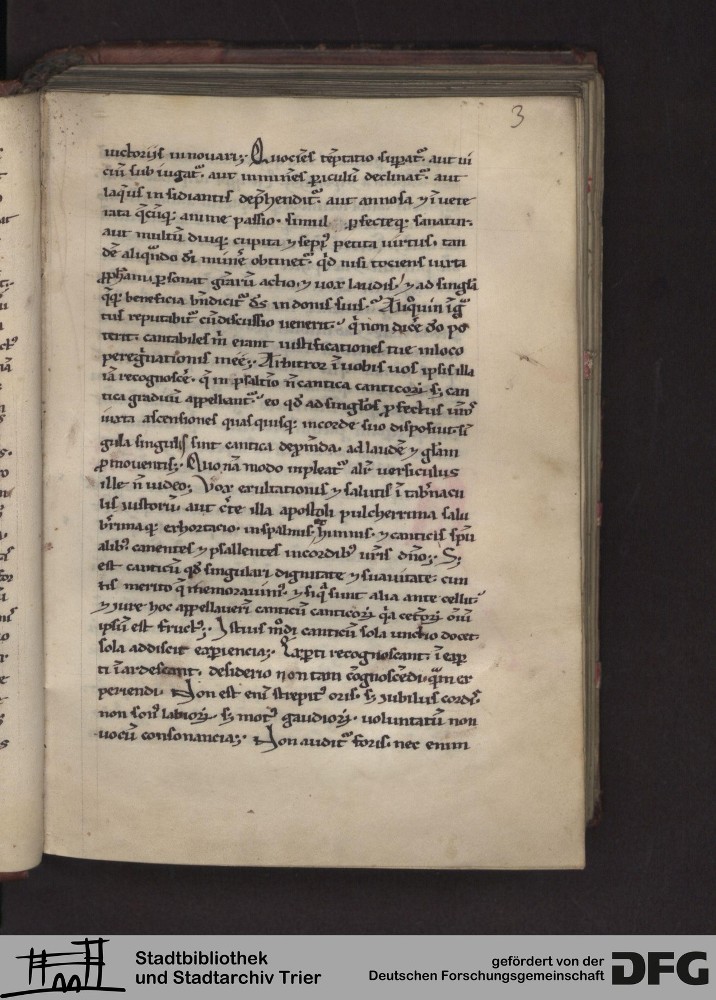 3
uictoriis innouari; Quociēs tēptatio supat᷑. aut ui
ciū sub iugat᷑. aut inminēs piculū declinat᷑. aut
laq̄us insidiantis dep̄hendit᷑. aut annosa ⁊ ī uete
rata q̄cūq; anime passio. simul pfecteq; sanatur.
aut multū diuq; cupita ⁊ sepi᷒ petita uirtus. tan
dē aliqn̄do dī munē obtinet᷑. qd̄ nisi tociens iuxta
pph̄am psonat gr̄arū actio. ⁊ uox laudis. ⁊ ad singla
q̄q; beneficia bn̄dicit᷑ ds̄ in donis suis. Alioquin īg̃
tus reputabit᷑ cū discussio uenerit. q̄ non dicē dō po
terit. cantabiles m̄ erant iustificationes tue inloco
peregrinationis mee; Arbitror ī uobis uos ipsis illa
iā recognoscē. q̄ in psaltio n̄ cantica canticoꝝ s; can
tica graduū appellant᷑. eo qd̄ ad singl̄os pfectus ur̄os
iuxta ascensiones quas quisq; incorde suo disposuit. sī
gula singulis sint cantica dep̄mēda. ad laudē ⁊ gl̄am
pmouentis; Quonā modo inpleat᷑ alr̄ uersiculus
ille n̄ uideo; Vox exultationis ⁊ salutis ī tab̄nacu
lis iustorū. aut c̄te illa apostoli pulcherrima salu
b̄rimaq; exhortacio. inspalmis. hymnis. ⁊ canticis spū
alib᷒ canentes ⁊ psallentes incordib᷒ ur̄is dn̄o; S;
est canticū qd̄ singulari dignitate ⁊ suauitate. cun
tis merito q̄ memorauim᷒. ⁊ siq̄ sunt alia ante cellit᷑
⁊ iure hoc appellauerī canticū canticoꝝ q̄a cetoꝝ oīū
ipsū est fruct᷒; Istius mo̅di canticū sola unctio docet
sola addiscit experiencia; Experti recognoscant. ī exp
ti īardescant. desiderio non tam cōgnoscēdi. q̄m ex
periendi. Non est enī strepit᷒ oris. s; iubilus cordis.
non son᷒ labioꝝ. s; mot᷒ gaudioꝝ. uoluntatū non
uocū consonancia; Non audit᷑ foris. nec enim
Stadtbibliothek
und Stadtarchiv Trier
gefördert von der
Deutschen Forschungsgemeinschaft
DFG